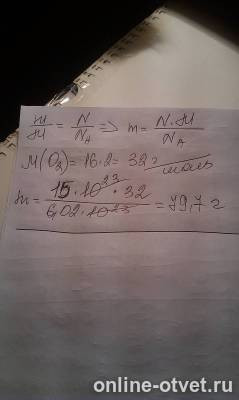 m/M = N/N_A => m = N·M/N_A
M(O₂) = 16·2 = 32 г/моль
m = 15·10²³·32/6,02·10²³ = 79,7 г
online-otvet.ru